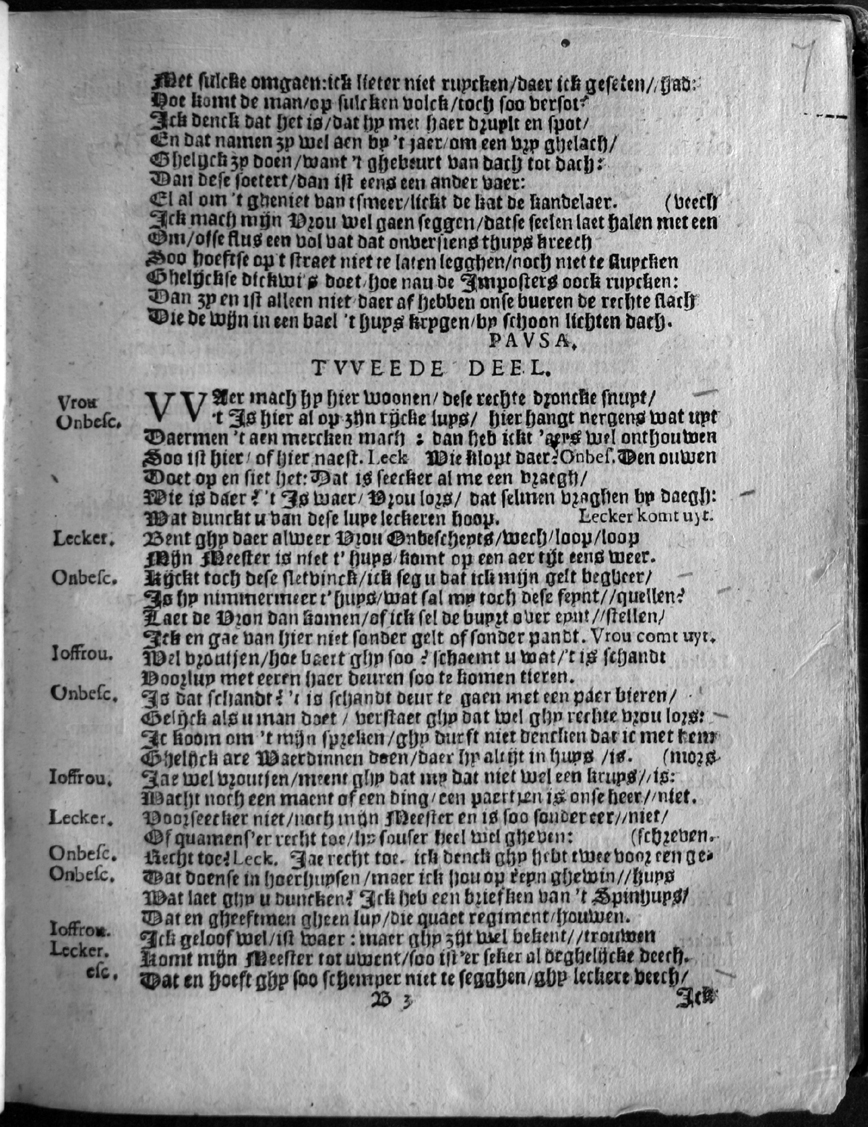 7
Met sulcke omgaen:ick lieter niet ruycken/daer ick geseten//had:
Hoe komt de man/op sulcken volck/toch soo versot?
Ick denck dat het is/dat hy met haer druylt en spot/
En dat namen zy wel aen by 't jaer/om een vry ghelach/
Ghelijck zy doen/want 't ghebeurt van dach tot dach:
Dan dese soetert/dan ist eens een ander vaer:
El al om 't gheniet van tsmeer/lickt de kat de kandelaer. (veech
Ick mach mijn Vrou wel gaen seggen/datse seelen laet halen met een
Om/ofse flus een vol vat dat onversiens thuys kreech
Soo hoeftse op 't straet niet te laten legghen/noch niet te sluycken
Ghelijckse dickwi's doet/hoe nau de Imposters oock ruycken:
Dan zy en ist alleen niet daer af hebben onse bueren de rechte slach
Die de wijn in een bael 't huys krygen/by schoon lichten dach.
PAVSA.
TVVEEDE DEEL.
Vrou Onbesc. VVAer mach hy hier woonen/dese rechte droncke snuyt/
't Is hier al op zijn rijcke luys/ hier hangt nergens wat uyt
Daermen 't aen mercken mach : dan heb ickt 'aers wel onthouwen
Soo ist hier/of hier naest. Leck Wie klopt daer? Onbes. Den ouwen
Doet op en siet het: Dat is seecker al me een vraegh/
Wie is daer? 't Is waer/Vrou lors/ dat selmen vraghen by daegh:
Wat dunckt u van dese luye leckeren hoop. Lecker komt uyt.
Lecker. Bent ghy daer alweer Vrou Onbescheyts/wech/loop/loop
Mijn Meester is niet t'huys/komt op een aer tijt eens weer.
Onbesc. Kijckt toch dese sletvinck/ick seg u dat ick mijn gelt begheer/
Is hy nimmermeer t'huys/wat sal my toch dese feynt//quellen?
Laet de Vron dan komen/of ick sel de buyrt over eynt//stellen/
Ick en gae van hier niet sonder gelt of sonder pandt. Vrou comt uyt.
Ioffrou. Wel vroutjen/hoe baert ghy soo? schaemt u wat/'t is schandt
Voorluy met eeren haer deuren soo te komen tieren.
Onbesc. Is dat schandt? 't is schandt deur te gaen met een paer bieren/
Gelijck als u man doet/ verstaet ghy dat wel ghy rechte vrou lors:
Ic koom om 't mijn spreken/ghy durst niet dencken dat ic met hem
Ghelijck are Waerdinnen doen/daer hy altijt in huys /is. (mors
Ioffrou. Jae wel vroutjen/meent ghy dat my dat niet wel een kruys//is:
Wacht noch een maent of een ding/een paertjen is onse heer//niet.
Lecker. Voorseecker niet/noch mijn Meester en is soo sonder eer//niet/
Of quamens'er recht toe/hy souser heel wel gheven: (schreven.
Onbesc. Recht toe? Leck. Jae recht toe. ick denck ghy hebt twee voor een ge-
Onbesc. Dat doense in hoerhuysen/maer ick hou op eeyn ghewin//huys
Wat laet ghy u duncken? Ick heb een briefken van 't Spinhuys/
Dat en gheeftmen gheen luy/die quaet regiment/houwen.
Ioffrou. Ick geloof wel/ist waer : maer ghy zijt wel bekent//trouwen
Lecker. Komt mijn Meester tot uwent/soo ist'er seker al deghelijcke deech.
esc. Dat en hoeft ghy soo schemper niet te segghen/ghy leckere veech/
B 3 Ick